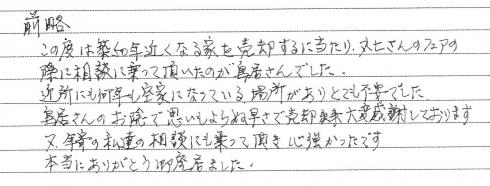 前略
この度は築50年近くなる家を売却するに当たり、丈七さんのフェアの
際に相談に乗って頂いたのが鳥居さんでした。
近所にも何年も空家になっている場所がありとても不安でした
鳥居さんのお陰で思いもよらぬ早さで売却出来大変感謝しております
又、年寄の私達の相談にも乗って頂き心強かったです
本当にありがとう御座居ました。